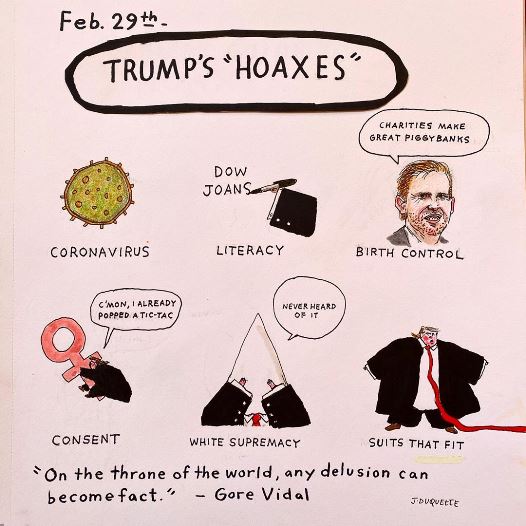 Feb. 29th-
TRUMP'S "HOAXES"
CHARITIES MAKE
GREAT PIGGYBANKS
DOW
JOANS
CORONAVIRUS
LITERACY
BIRTH CONTROL
C'MON, I ALREADY
POPPED A TIC-TAC
NEVER HEARD
OF IT
CONSENT
WHITE SUPREMACY
SUITS THAT FIT
"On the throne of the world, any delusion can
become fact." - Gore Vidal
J.DUQUETTE